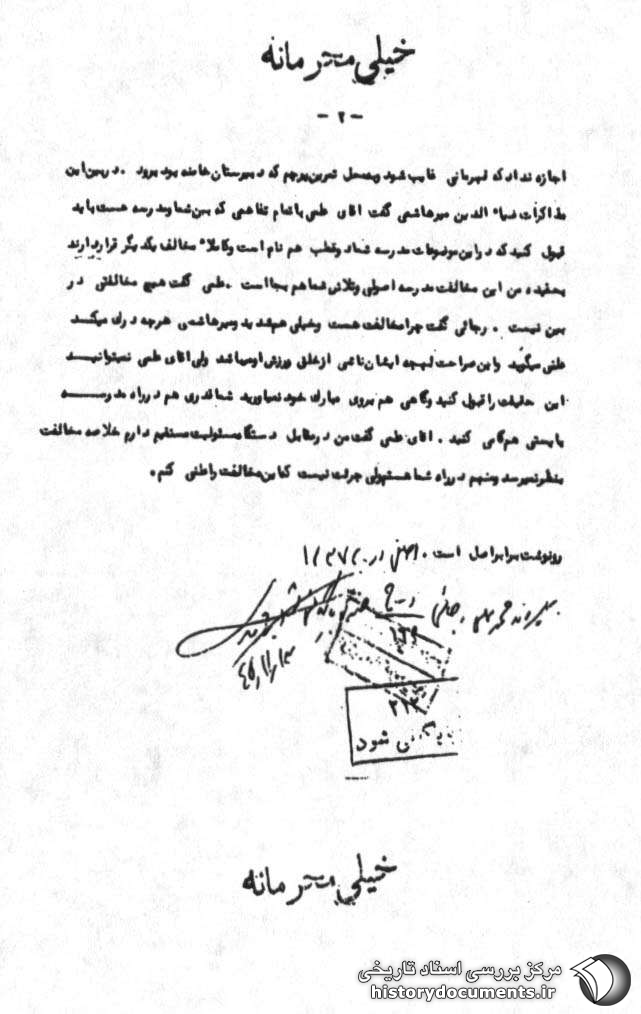 خیلی محرمانه
- ۲ -
اجازه نداد که قهرمانی غایب شود وبمحل تمرین پرچم که دبیرستان هامنه بود برود . در بین این
مذاکرات ضیاء الدین میرهاشمی گفت اقای علمی با تمام تفاهمی که بین شما ومدرسه هست باید
قبول کنید که در این موضوعات مدرسه شما دو قطب هم نام است وکاملا" مخالف یکدیگر قرار دارند
بعقیده من این مخالفت مدرسه اصولی وتلاش شما هم بجا است . علمی گفت هیچ مخالفتی در
بین نیست . رجائی گفت چرا مخالفت هست وخیلی هم شدید ومیرهاشمی هرچه درک میکند
علنی میگوید واین صراحت لهجه ایشان ناشی از خلق ورزش اومیباشد ولی اقای علمی نمیتوانید
این حقیقت را قبول کنید وگاهی هم بروی مبارک خود نمیاورید شما قدری هم در راه مدرسه
بایستی هم گامی کنید . اقای علمی گفت من در مقابل دستگاه مسئولیت مستقیم دارم خلاصه مخالفت
بنظر نمیرسد ومنهم در راه شما هستم ولی جرئت نیست که این مخالفت را علنی کنم .
رونوشت برابر اصل است .
محمدعلی رجائی
۴۵/۱۱/۳
۳۱۲
بایگانی شود
خیلی محرمانه
مرکز بررسی اسناد تاریخی
historydocuments.ir